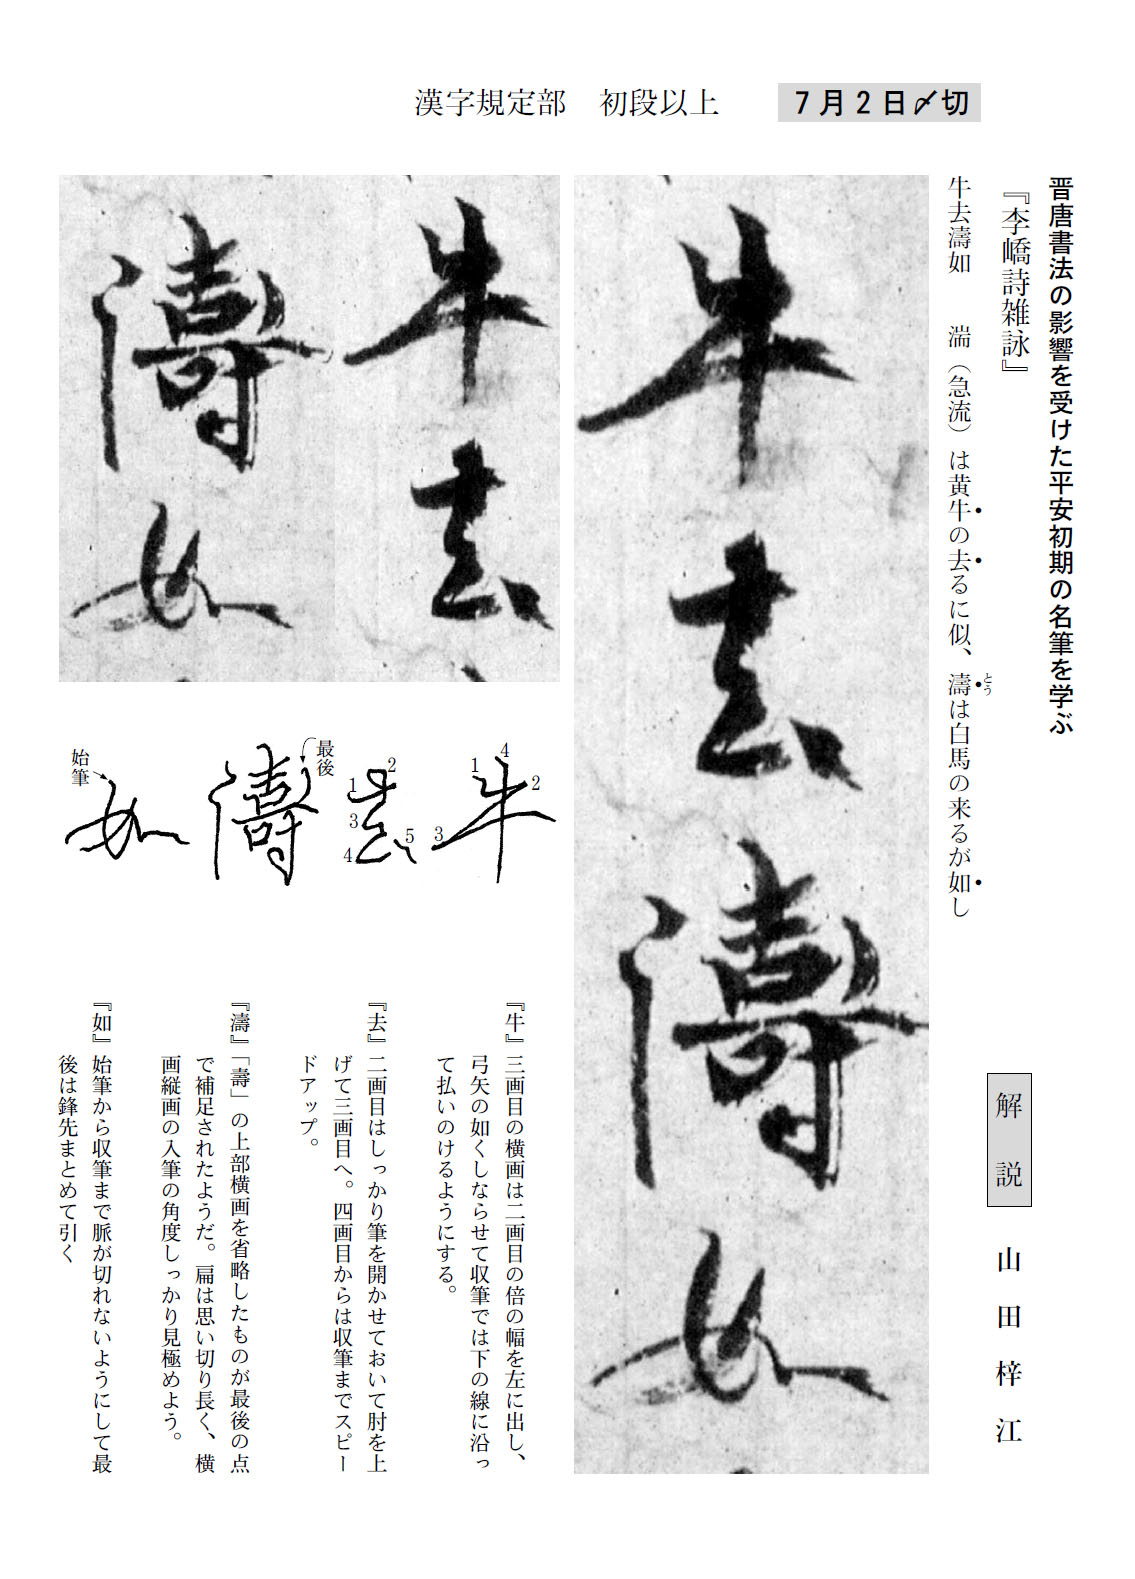 漢字規定部　初段以上
7月2日〆切
晋唐書法の影響を受けた平安初期の名筆を学ぶ
『李嶠詩雑詠』
牛去濤如　湍（急流）は黄牛の去るに似、濤は白馬の来るが如し
とう
解説
山田梓江
牛去濤如
牛去
濤如
1
2
3
4
1
2
3
4
5
最後
始筆
『牛』三画目の横画は二画目の倍の幅を左に出し、
弓矢の如くしならせて収筆では下の線に沿っ
て払いのけるようにする。
『去』二画目はしっかり筆を開かせておいて肘を上
げて三画目へ。四画目からは収筆までスピー
ドアップ。
『濤』「壽」の上部横画を省略したものが最後の点
で補足されたようだ。扁は思い切り長く、横
画縦画の入筆の角度しっかり見極めよう。
『如』始筆から収筆まで脈が切れないようにして最
後は鋒先まとめて引く